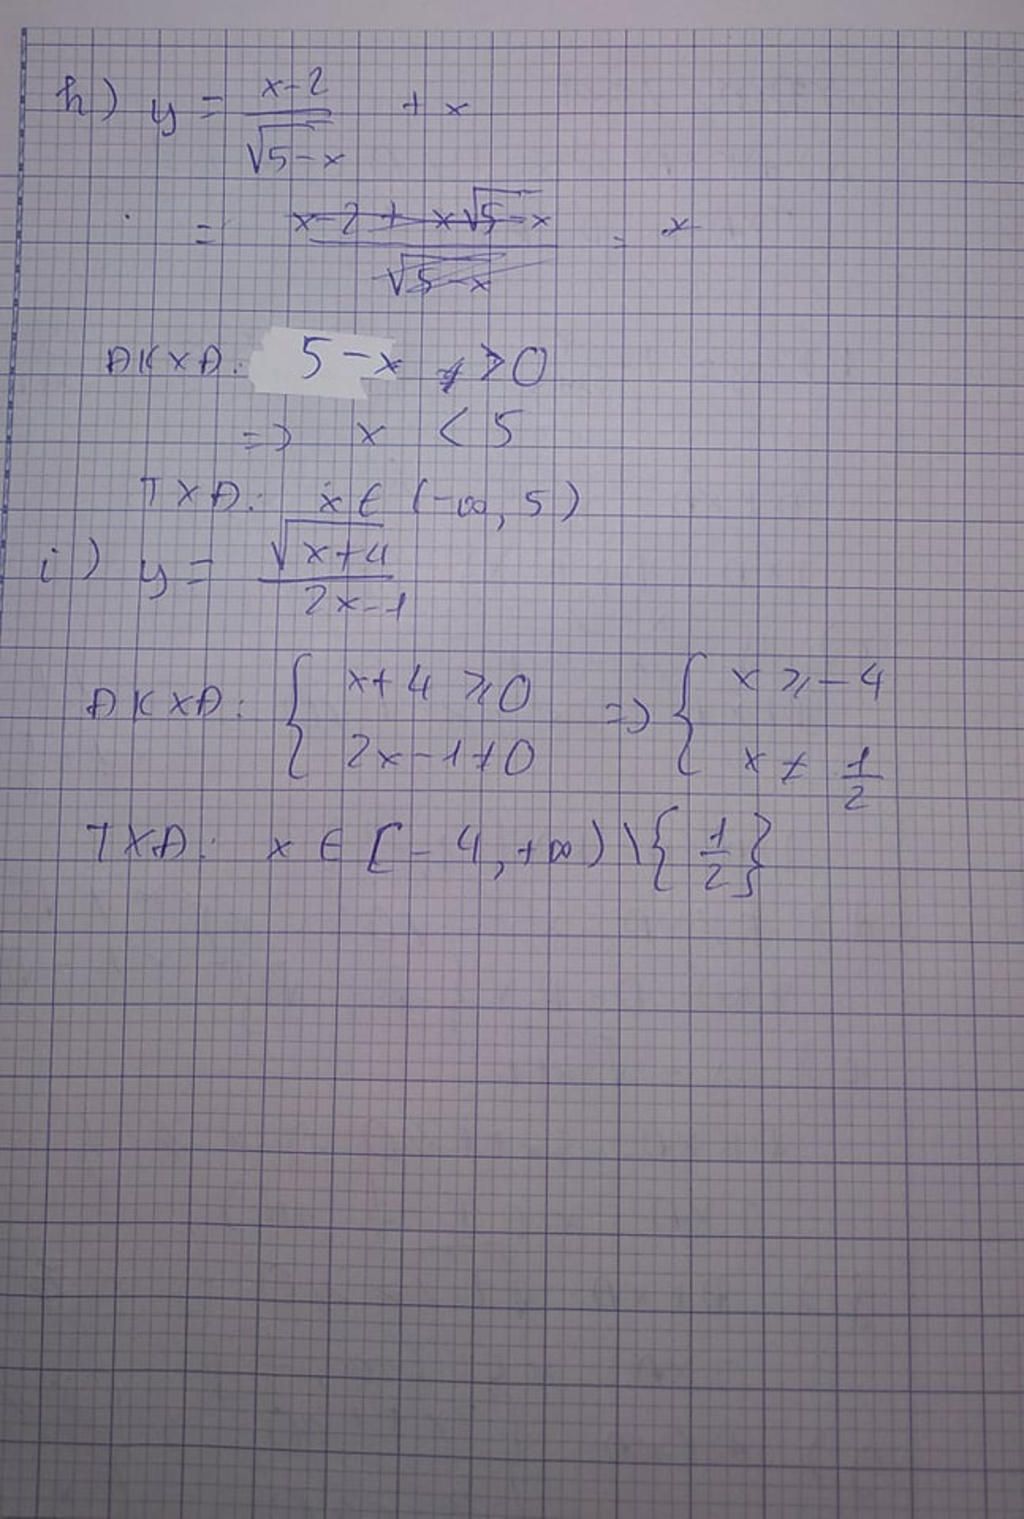 h) y = \frac{x-2}{\sqrt{5-x}} + x
= \frac{x-2+x\sqrt{5-x}}{\sqrt{5-x}} = x
ĐKXĐ: 5-x > 0
=> x < 5
TXĐ: x ∈ (-∞, 5)
i) y = \frac{\sqrt{x+4}}{2x-1}
ĐKXĐ: { x+4 ⩾ 0 => { x ⩾ -4
2x-1 ≠ 0 x ≠ \frac{1}{2}
TXĐ: x ∈ [-4, +∞) \ { \frac{1}{2} }